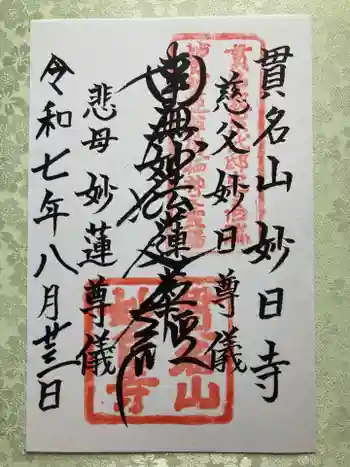 貫名山 妙日寺
慈父 妙日 尊儀
南無妙法蓮華経
悲母 妙蓮 尊儀
令和七年八月廿三日
貫名山
妙日寺